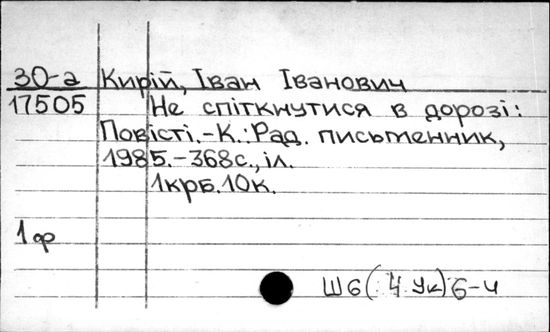 30-а Кирій, Іван Іванович
17505 Не спіткнутися в дорозі:
Повісті.-К.:Рад. письменник,
1985.-368с.,іл.
1крб.10к.
1 ф
Ш6(4Ук)6-4